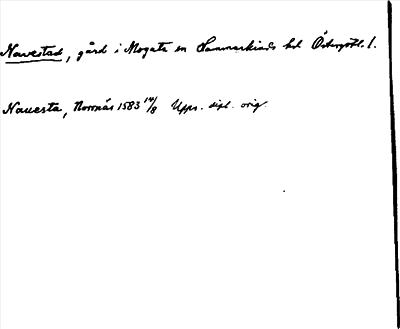 Navestad, gård i Mogata sn Hammarkinds hd Östergötl. l.
Nauesta, Norrnäs 1583 14/8 Upps. dipl. orig